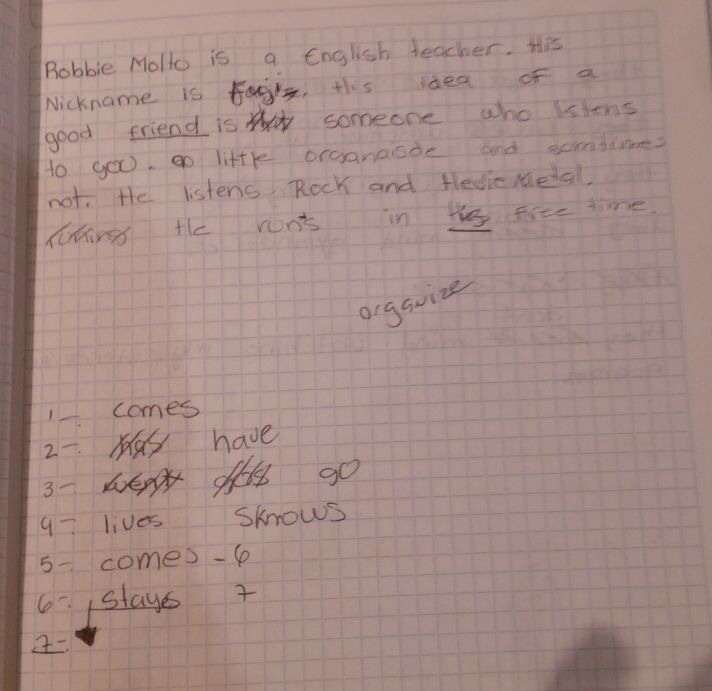 Robbie Molto is a English teacher. His
Nickname is Fogis. His idea of a
good friend is someone who listens
to you. a little organaisde and somtimes
not. He listens Rock and Hevie Metal.
He runs in his Free time.
organize
1-. comes
2-. have
3-. go
4-. lives 5knows
5-. comes - 6
6-. stays 7
7-.